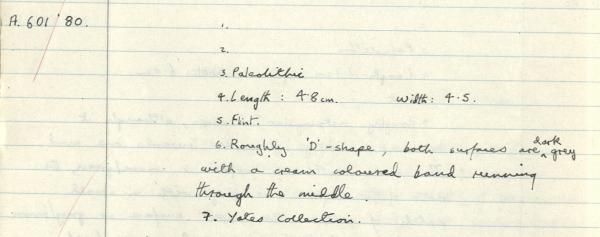 A.601 '80.
1.
2.
3. Paleolithic
4. Length : 4.8 cm. Width : 4.5.
5. Flint.
6. Roughly 'D'-shape, both surfaces are dark grey
with a cream coloured band running
through the middle.
7. Yates Collection.